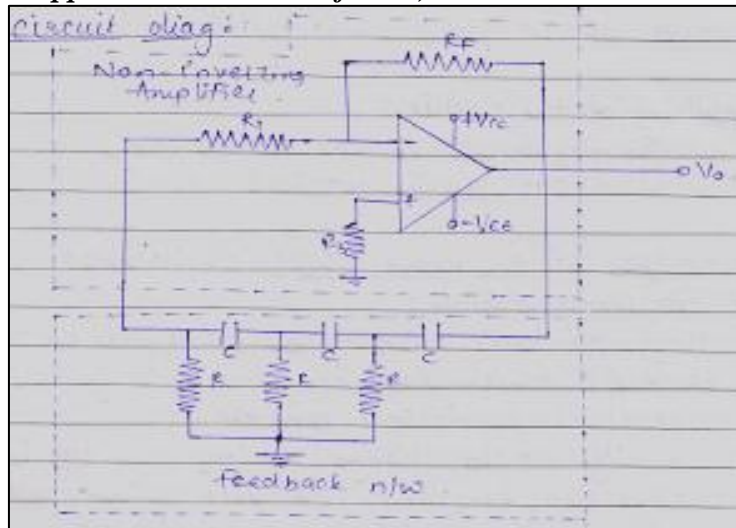 circuit diag:
RF
Non-Inverting
Amplifier
R1
+Vcc
Vo
-VEE
C
C
C
R
R
R
Feedback n/w